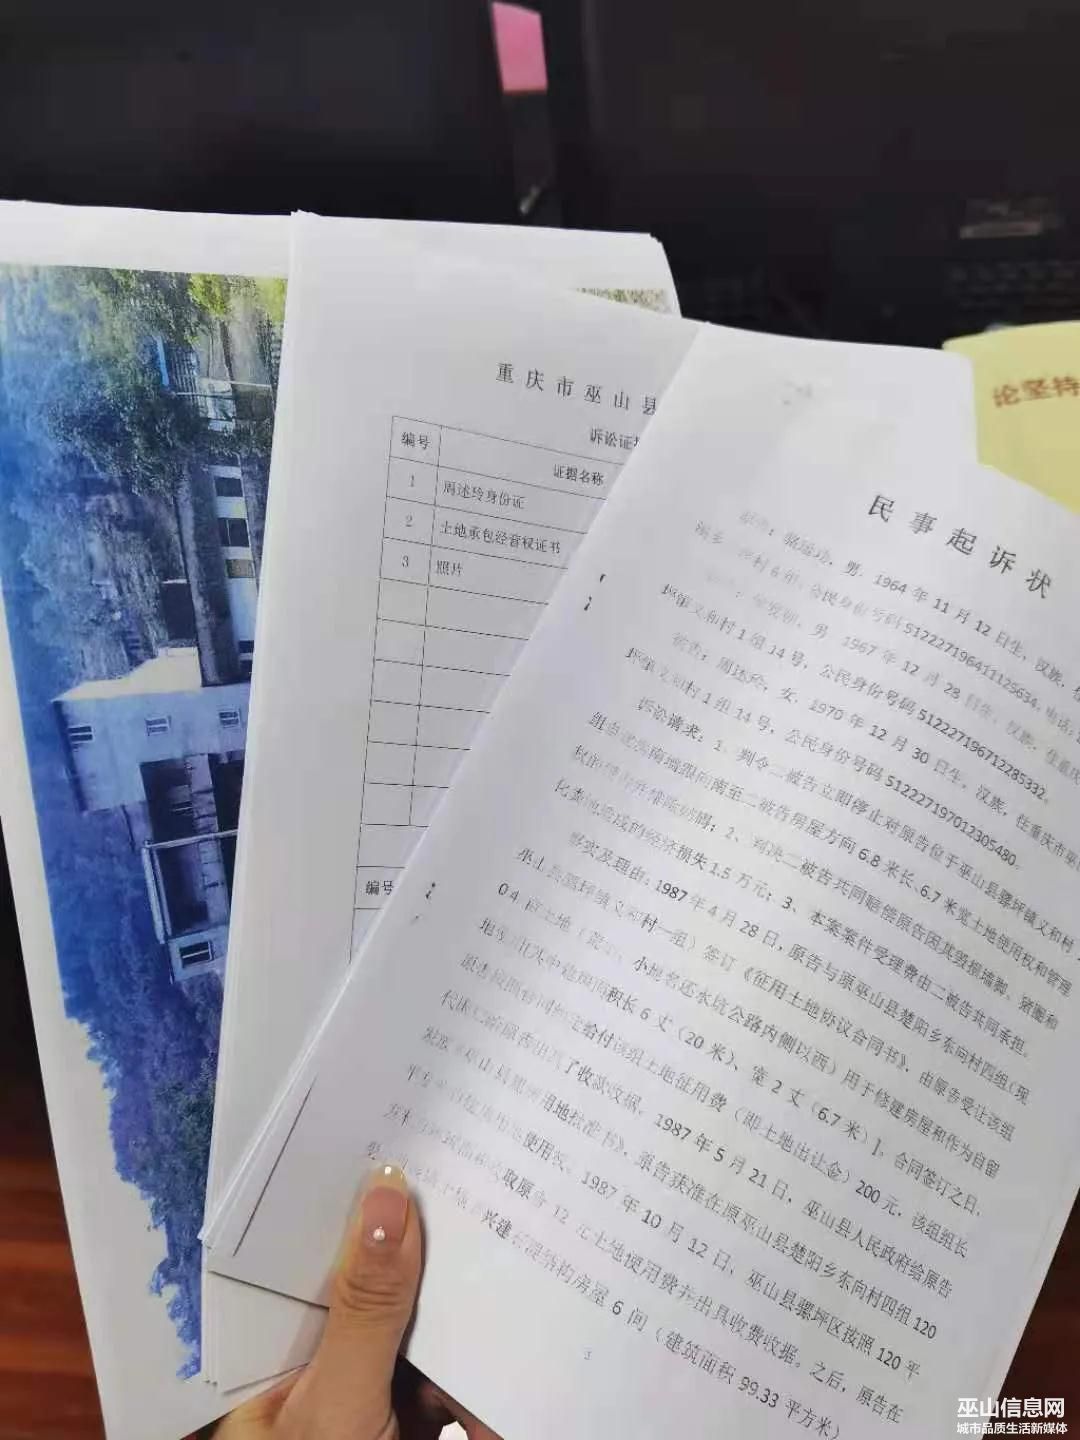 论坚持
重庆市巫山县
诉讼证据
编号
证据名称
1
周述玲身份证
2
土地承包经营权证书
3
照片
编号
民事起诉状
骆运功，男，1964年11月12日生，汉族，住
村6组，公民身份号码512227196411125634，电话：
男，1967年12月28日生，汉族，住重庆
坪镇义和村1组14号，公民身份号码512227196712285332。
被告：周述玲，女，1970年12月30日生，汉族，住重庆市巫山
坪镇义和村1组14号，公民身份号码512227197012305480。
诉讼请求：1、判令二被告立即停止对原告位于巫山县骡坪镇义和村
南端跟向南至二被告房屋方向6.8米长、6.7米宽土地使用权和管理
权的侵占并排除妨碍；2、判决二被告共同赔偿原告因其毁损墙脚、猪圈和
化粪池造成的经济损失1.5万元；3、本案案件受理费由二被告共同承担。
事实及理由：1987年4月28日，原告与原巫山县楚阳乡东向村四组（现
巫山县骡坪镇义和村一组）签订《征用土地协议合同书》，由原告受让该组
0.4亩土地（荒 小地名还水坑公路内侧以西）用于修建房屋和作为自留
面积长6丈（20米）、宽2丈（6.7米）】。合同签订之日，
原告按照合同约定给付该组土地征用费（即土地出让金）200元，该组组长
代 原告出具了收款收据。1987年5月21日，巫山县人民政府给原告
用地批准书》，原告获准在原巫山县楚阳乡东向村四组120
用地使用权。1987年10月12日，巫山县骡坪区按照120平
方米 收取原告12元土地使用费并出具收费收据。之后，原告在
兴建 混结构房屋6间（建筑面积99.33平方米）
3
巫山信息网
城市品质生活新媒体